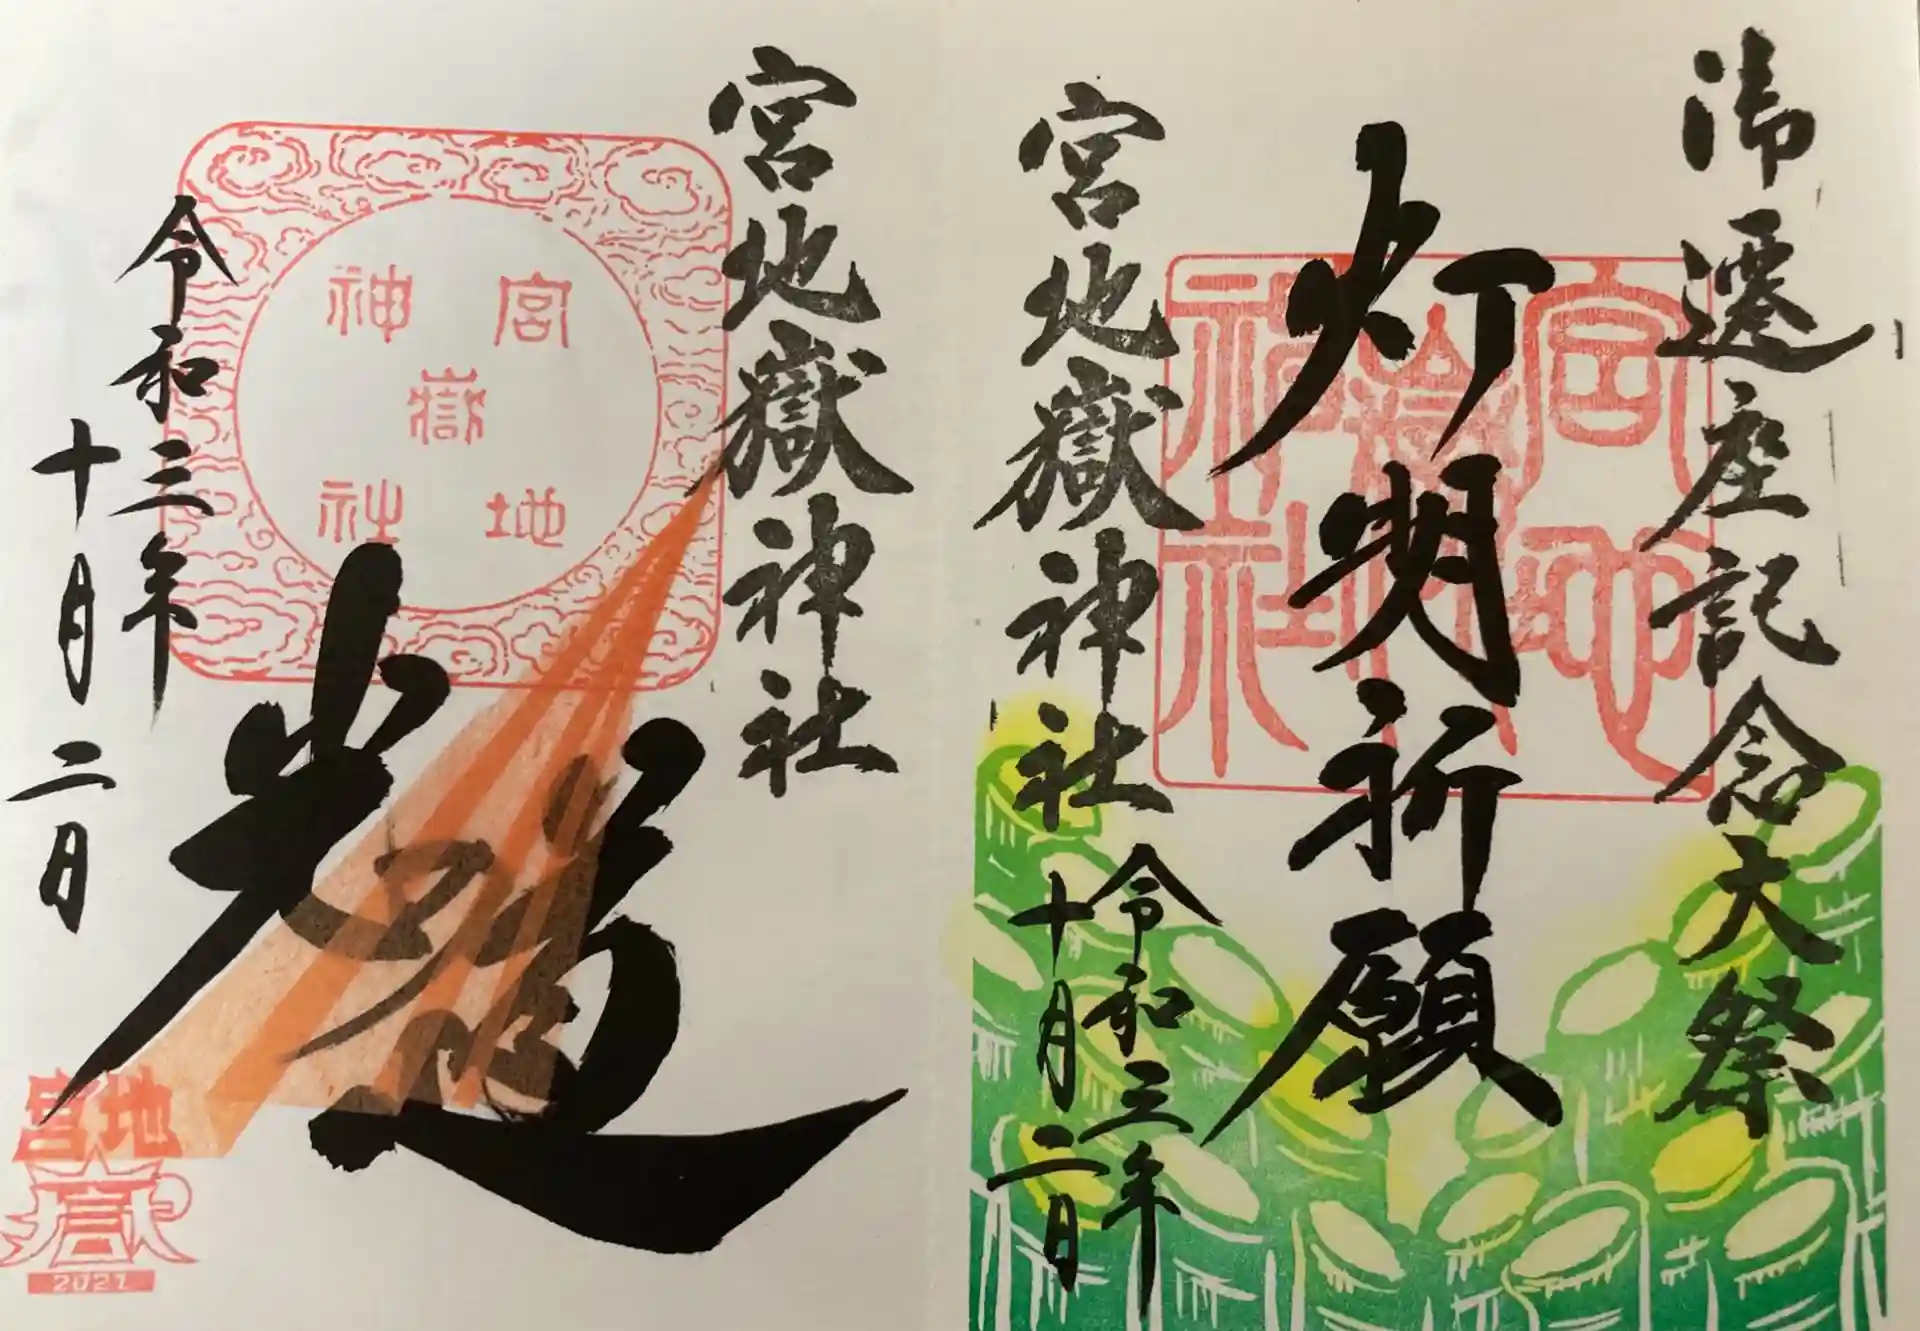 御遷座記念大祭
灯明祈願
宮地嶽神社
令和三年
十月二日
宮地
嶽
神社
宮地嶽神社
光道
令和三年
十月二日
宮地
嶽
神社
宮地
嶽
2021